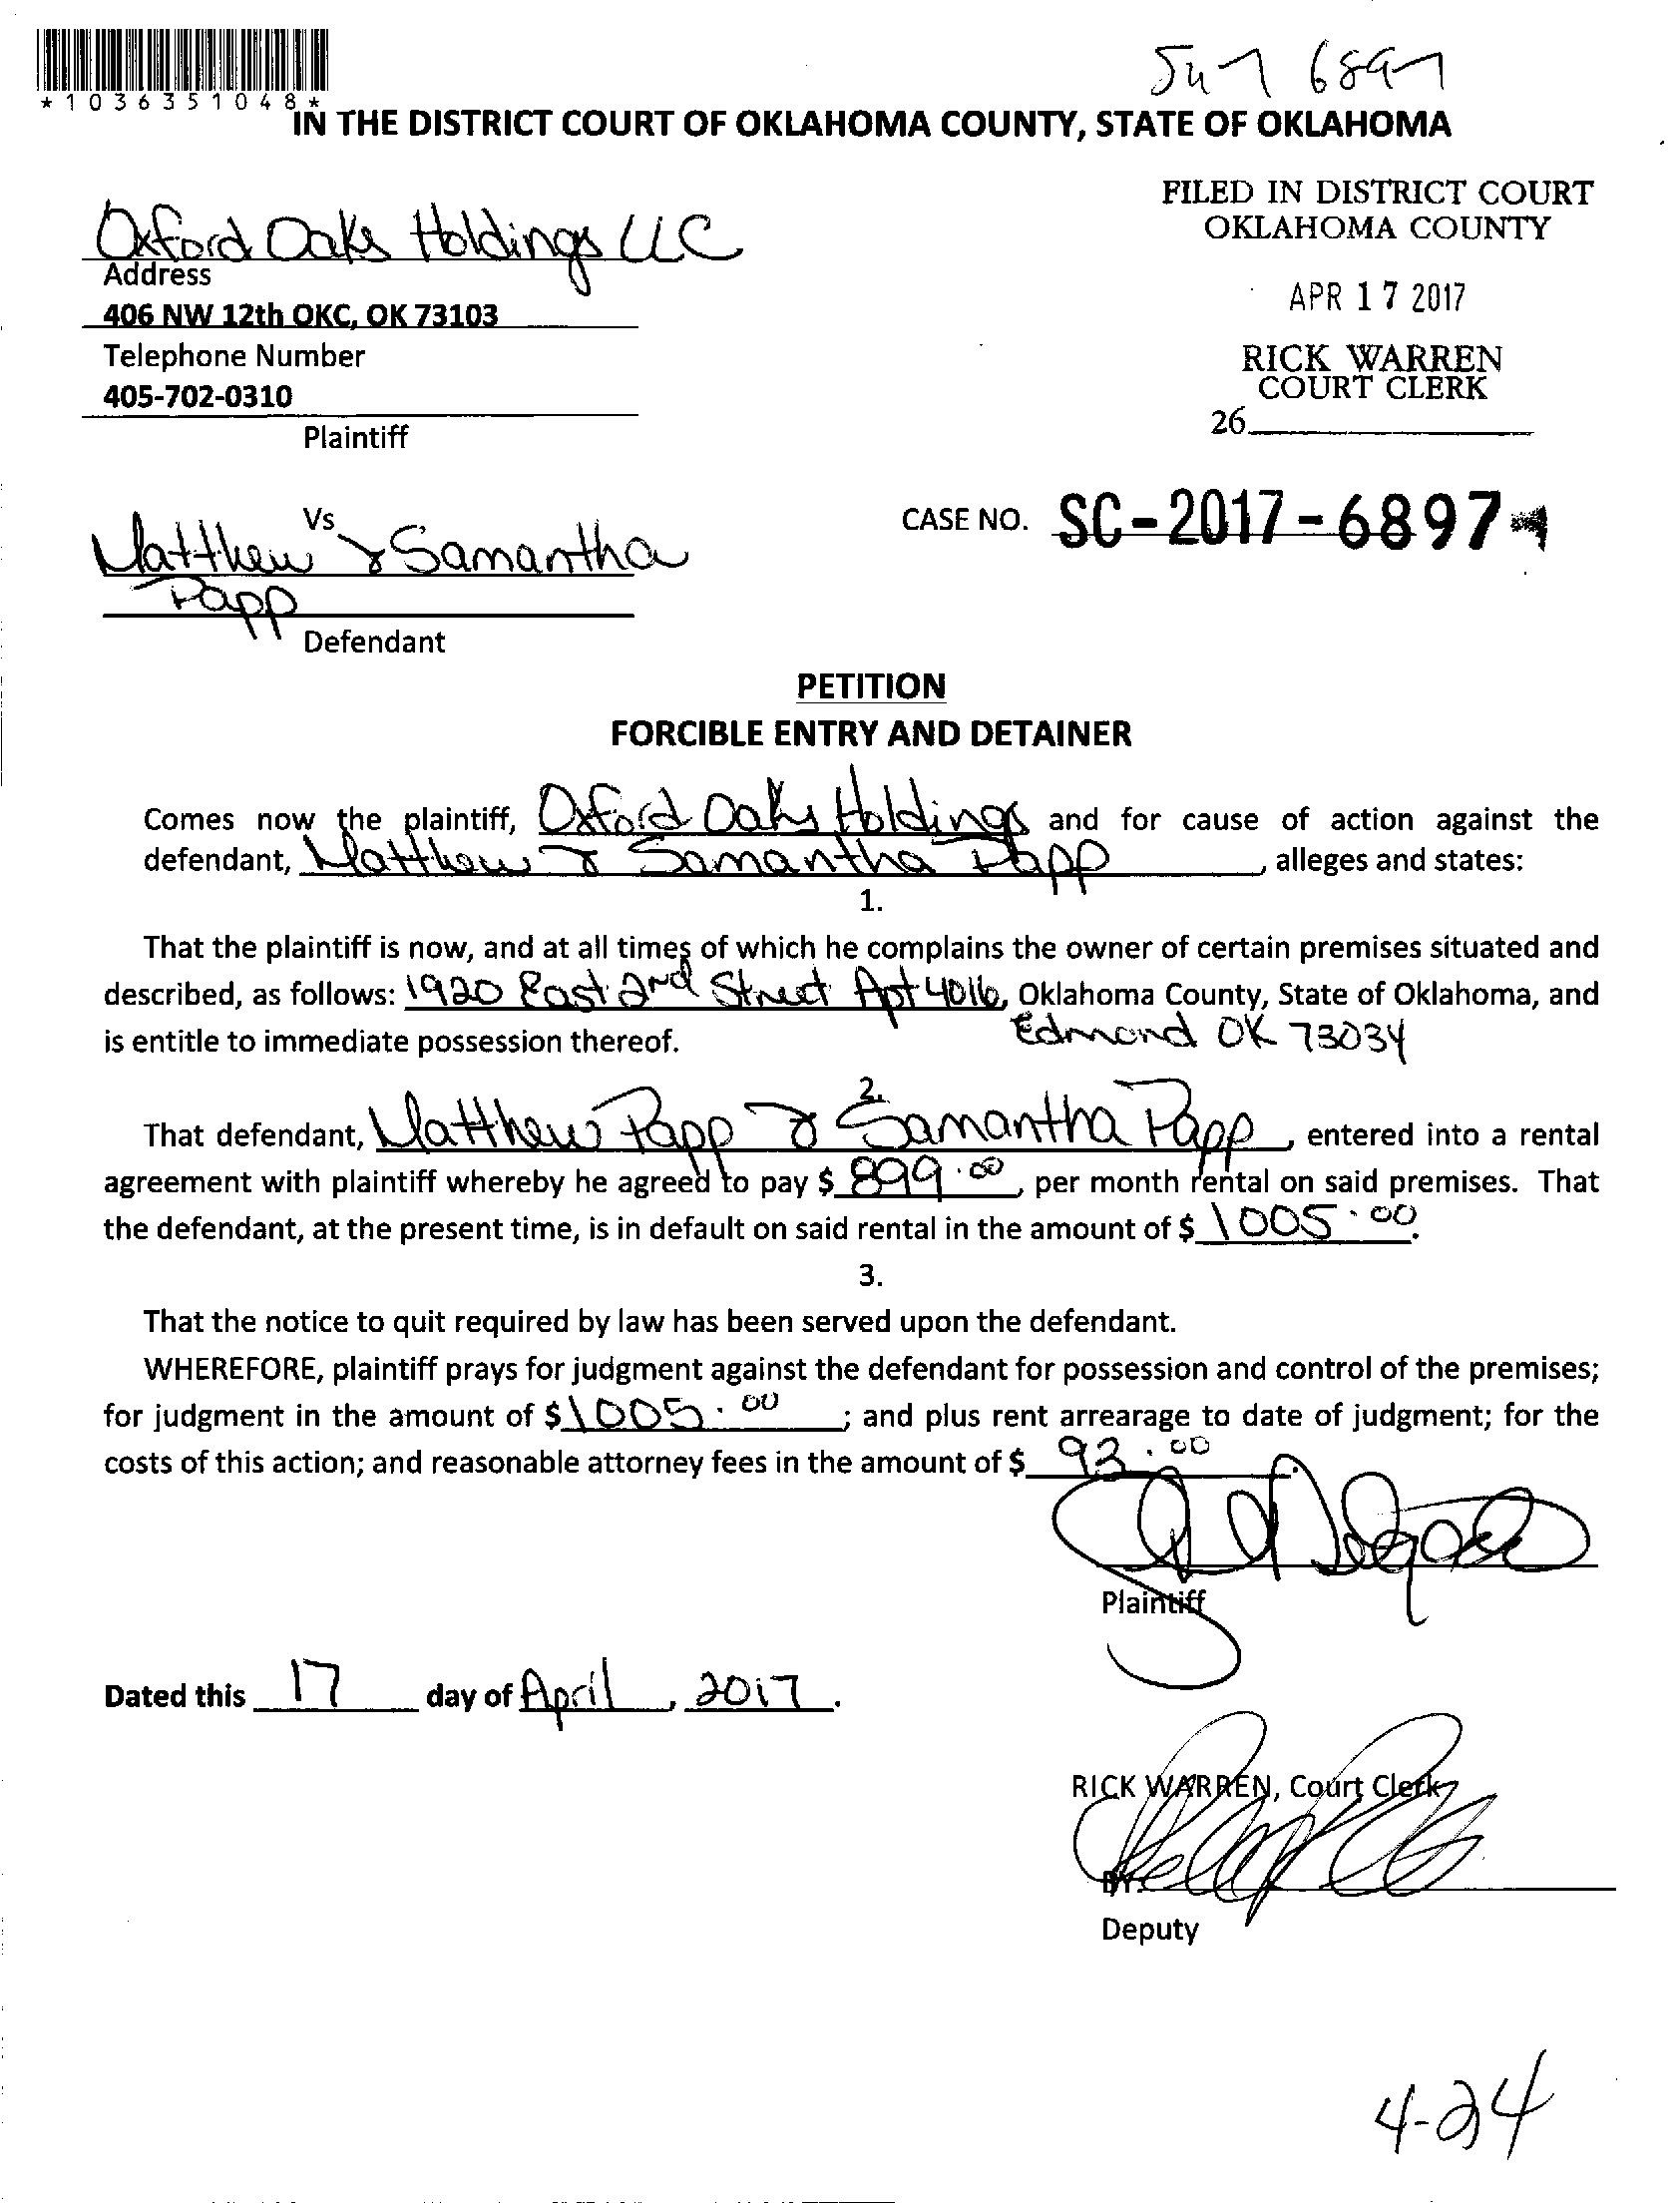 *1036351048*
6897
IN THE DISTRICT COURT OF OKLAHOMA COUNTY, STATE OF OKLAHOMA
FILED IN DISTRICT COURT
OKLAHOMA COUNTY
APR 17 2017
RICK WARREN
COURT CLERK
26
Oxford Oaks Holdings LLC
Address
406 NW 12th OKC, OK 73103
Telephone Number
405-702-0310
Plaintiff
Vs
CASE NO. SC-2017-6897
Matthew & Samantha
Papp
Defendant
PETITION
FORCIBLE ENTRY AND DETAINER
Comes now the plaintiff, Oxford Oaks Holdings and for cause of action against the
defendant, Matthew & Samantha Papp, alleges and states:
1.
That the plaintiff is now, and at all times of which he complains the owner of certain premises situated and
described, as follows: 1920 East 2nd Street Apt 4016, Oklahoma County, State of Oklahoma, and
Edmond OK 73034
is entitle to immediate possession thereof.
2.
That defendant, Matthew Papp & Samantha Papp, entered into a rental
agreement with plaintiff whereby he agreed to pay $ 899.00, per month rental on said premises. That
the defendant, at the present time, is in default on said rental in the amount of $ 1005.00.
3.
That the notice to quit required by law has been served upon the defendant.
WHEREFORE, plaintiff prays for judgment against the defendant for possession and control of the premises;
for judgment in the amount of $ 1005.00; and plus rent arrearage to date of judgment; for the
costs of this action; and reasonable attorney fees in the amount of $ 93.00.
Plaintiff
Dated this 17 day of April, 2017.
RICK WARREN, Court Clerk
BY:
Deputy
4-24